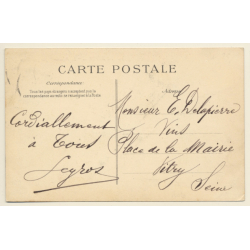 CARTE POSTALE
Correspondance
Adresse
Cordiallement
à Tous
Legros
Monsieur E. Delapierre
Vins
Place de la Mairie
Vitry
Seine